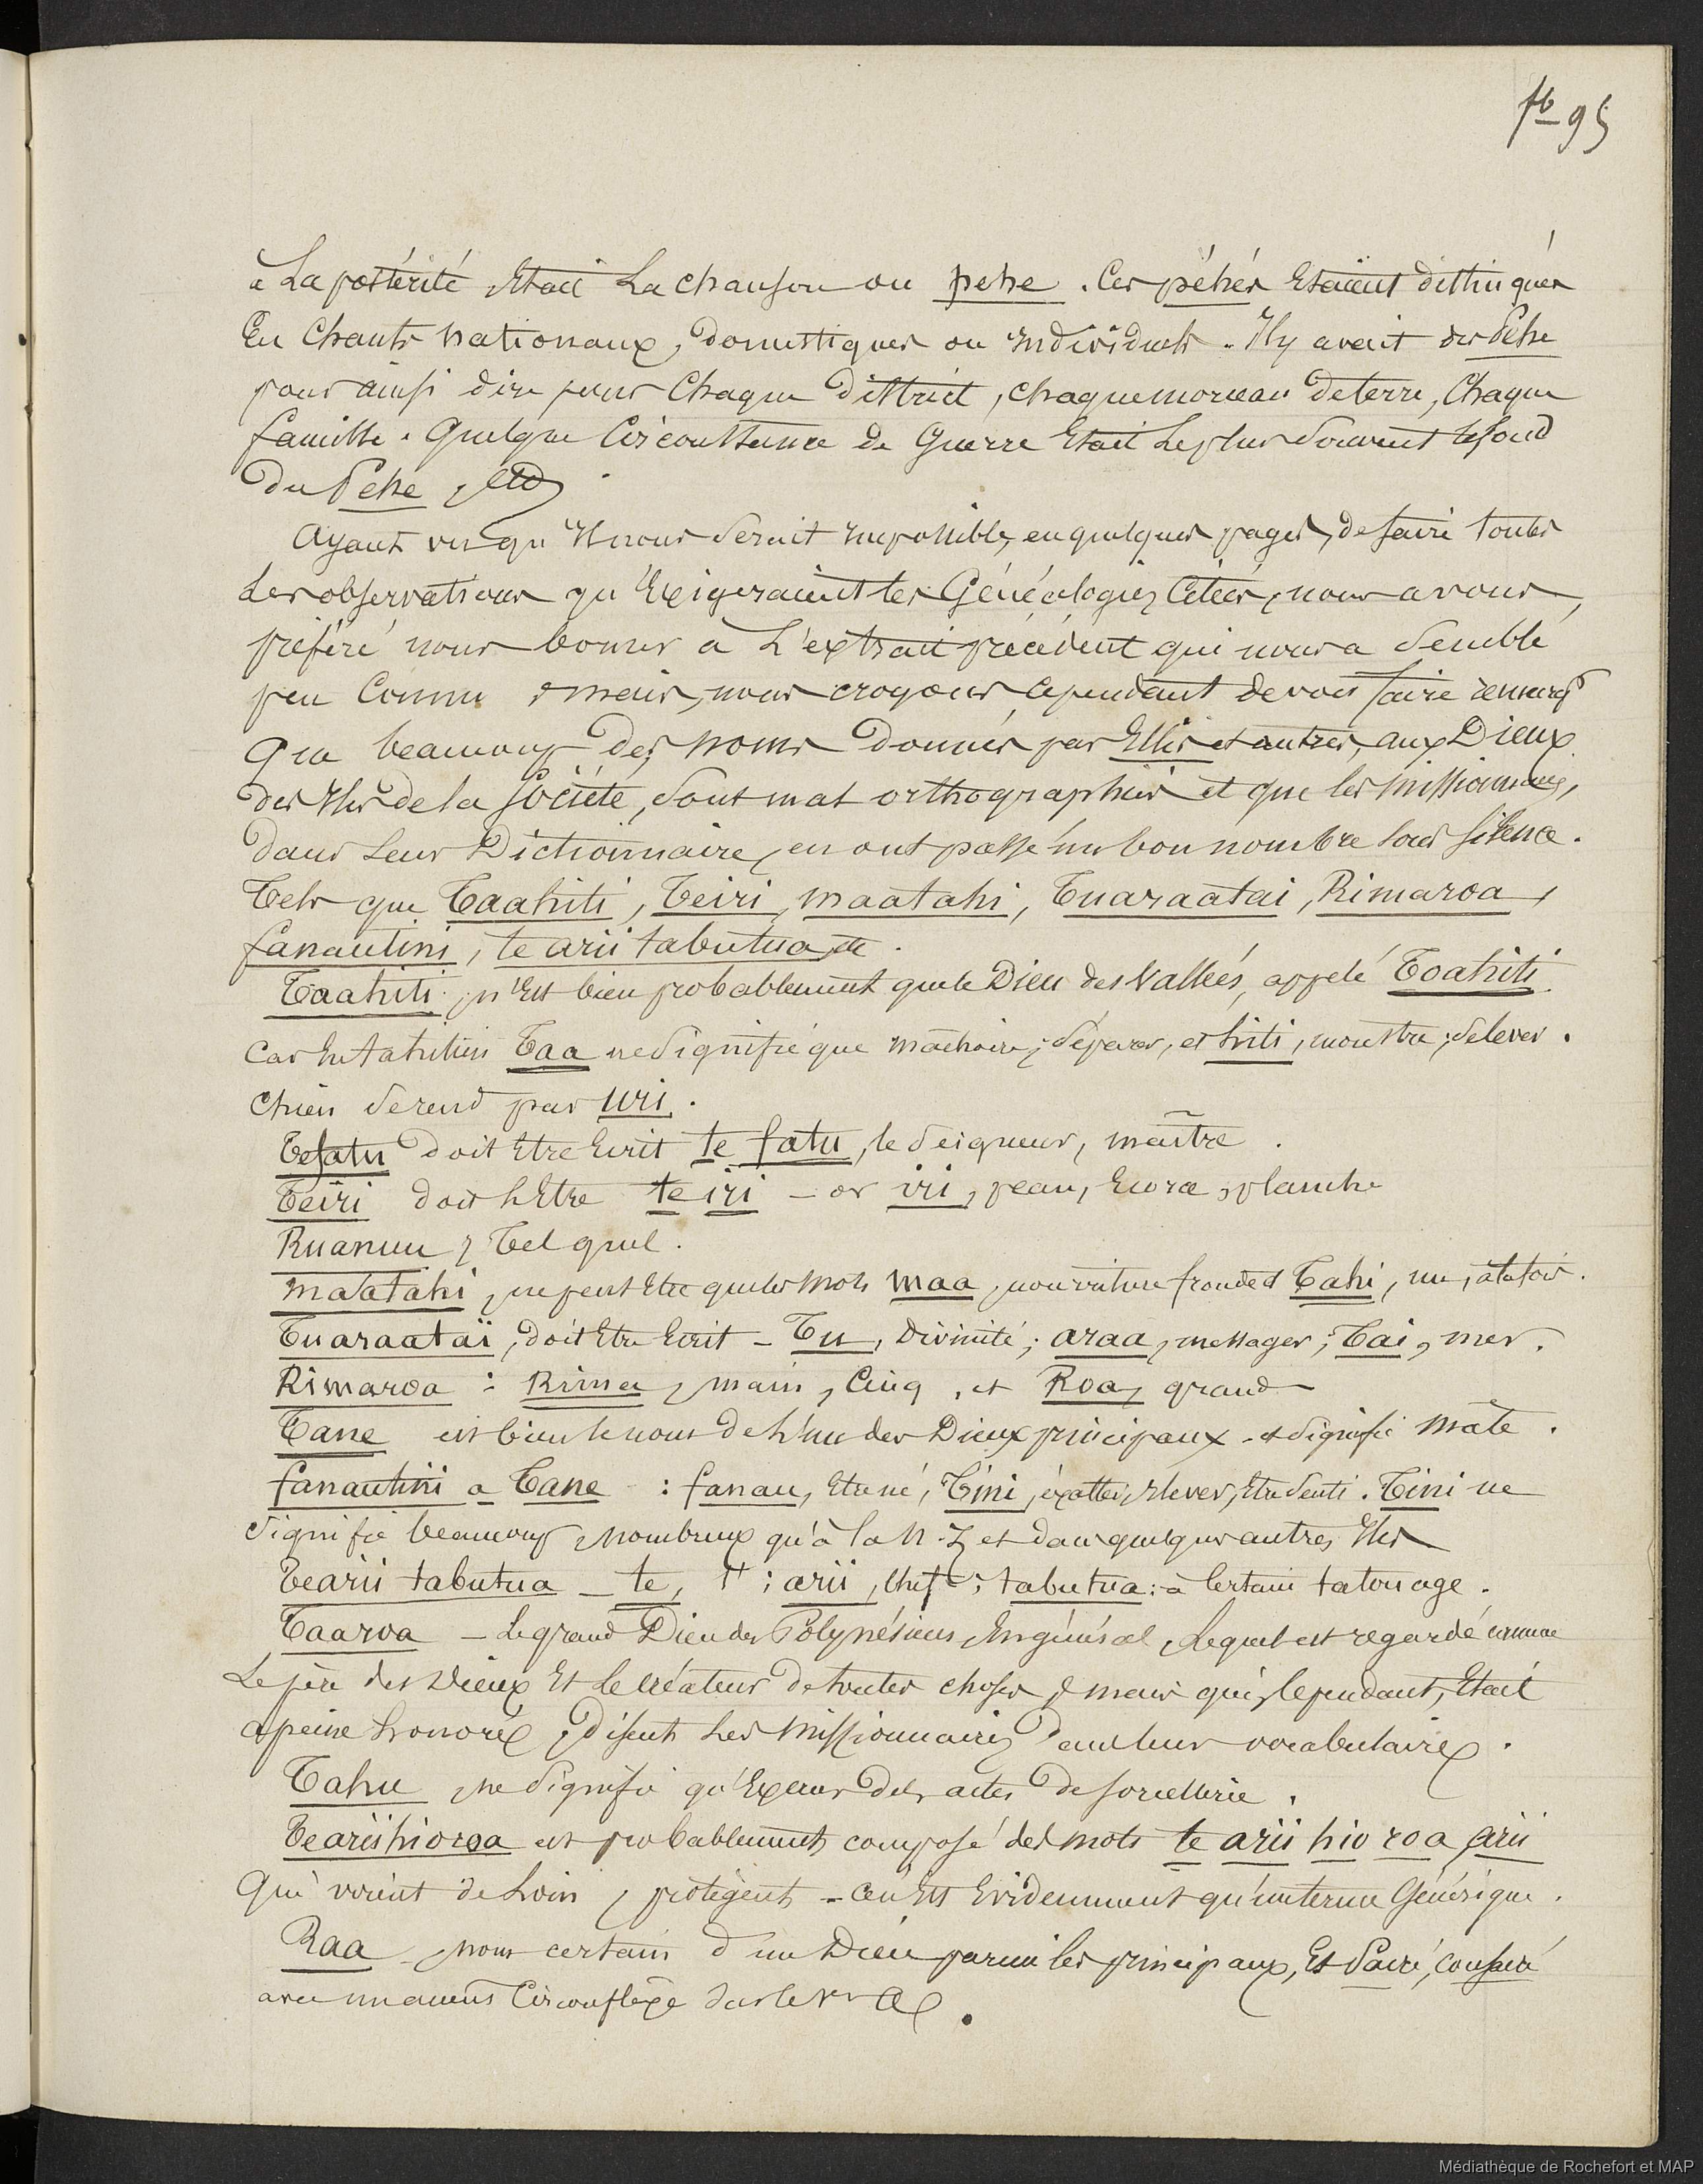 fo 95
à La postérité Etait La chanson ou pehe. Ces péhés Etaient distingués
En Chants nationaux, domestiques ou Individuels. Il y avait des Pehe
pour ainsi dire pour Chaque district, chaque morceau de terre, Chaque
famille. Quelque Circonstance de Guerre Etait Le plus Souvent le fond
du Pehe, etc.
Ayant vu qu'Il nous Serait Impossible, en quelques pages, de faire toutes
Les observations qu'Exigeraient les Généalogies Citées, nous avons
préféré nous borner à L'extrait précédent qui nous a Semblé
peu Connu; mais, nous croyons Cependant devoir faire remarqr
que beaucoup des noms donnés par Ellis et autres, aux Dieux
des Iles de la Société, Sont mal orthographiés et que les Missionnaires,
dans Leur Dictionnaire, en ont passé un bon nombre Sous Silence.
Tels que Taahiti, Teiri, maatahi, Tuaraatai, Rimaroa,
fanautini, te arii tabutua, etc.
Taahiti, n'Est bien probablement que le Dieu des Vallées, appelé Toahiti.
Car En tahitien Taa ne Signifie que machoire; Séparer, et hiti, monstre; Se lever.
Chien Se rend par Uri.
Tefatu doit Etre Ecrit te fatu, le Seigneur, maître.
Teiri doit L'Etre te iri - or iri, peau, Ecorce, planche
Ruanuu, Tel quel.
Maatahi, ne peut Etre que les Mots Maa, nourriture, fronde et Tahi, un, à la fois.
Tuaraataï, doit Etre Ecrit - Tu, Divinité; araa, messager; Tai, mer.
Rimaroa: Rima, main, Cinq, et Roa, grand
Tane est bien le nom de L'un des Dieux principaux - et Signifie Mâle.
fanautini a Tane: fanau, Etre né, Tini, exalter, Elever, Etre Senti. Tini ne
Signifie beaucoup, Nombreux qu'à la N. Z et dans quelques autres Iles
Tearii tabutua - te, le; arii, Chef; tabutua: à Certain tatouage.
Taaroa - Le grand Dieu des Polynésiens En général, Lequel est regardé comme
Le père des Dieux Et Le Créateur de toutes choses, mais qui, Cependant, Etait
à peine honoré, disent Les Missionnaires dans leur vocabulaire.
Tahu, ne Signifie qu'Exercer des actes de Sorcellerie.
Teariihioroa est probablement composé des mots te arii hio roa, arii
Qui voient de Loin, protègent - Ce n'Est Evidemment qu'un terme Générique.
Raa, nom certain d'un Dieu parmi les principaux, Est Sacré, consacré
avec un accent Circonflexe Sur le 1er a.
Médiathèque de Rochefort et MAP